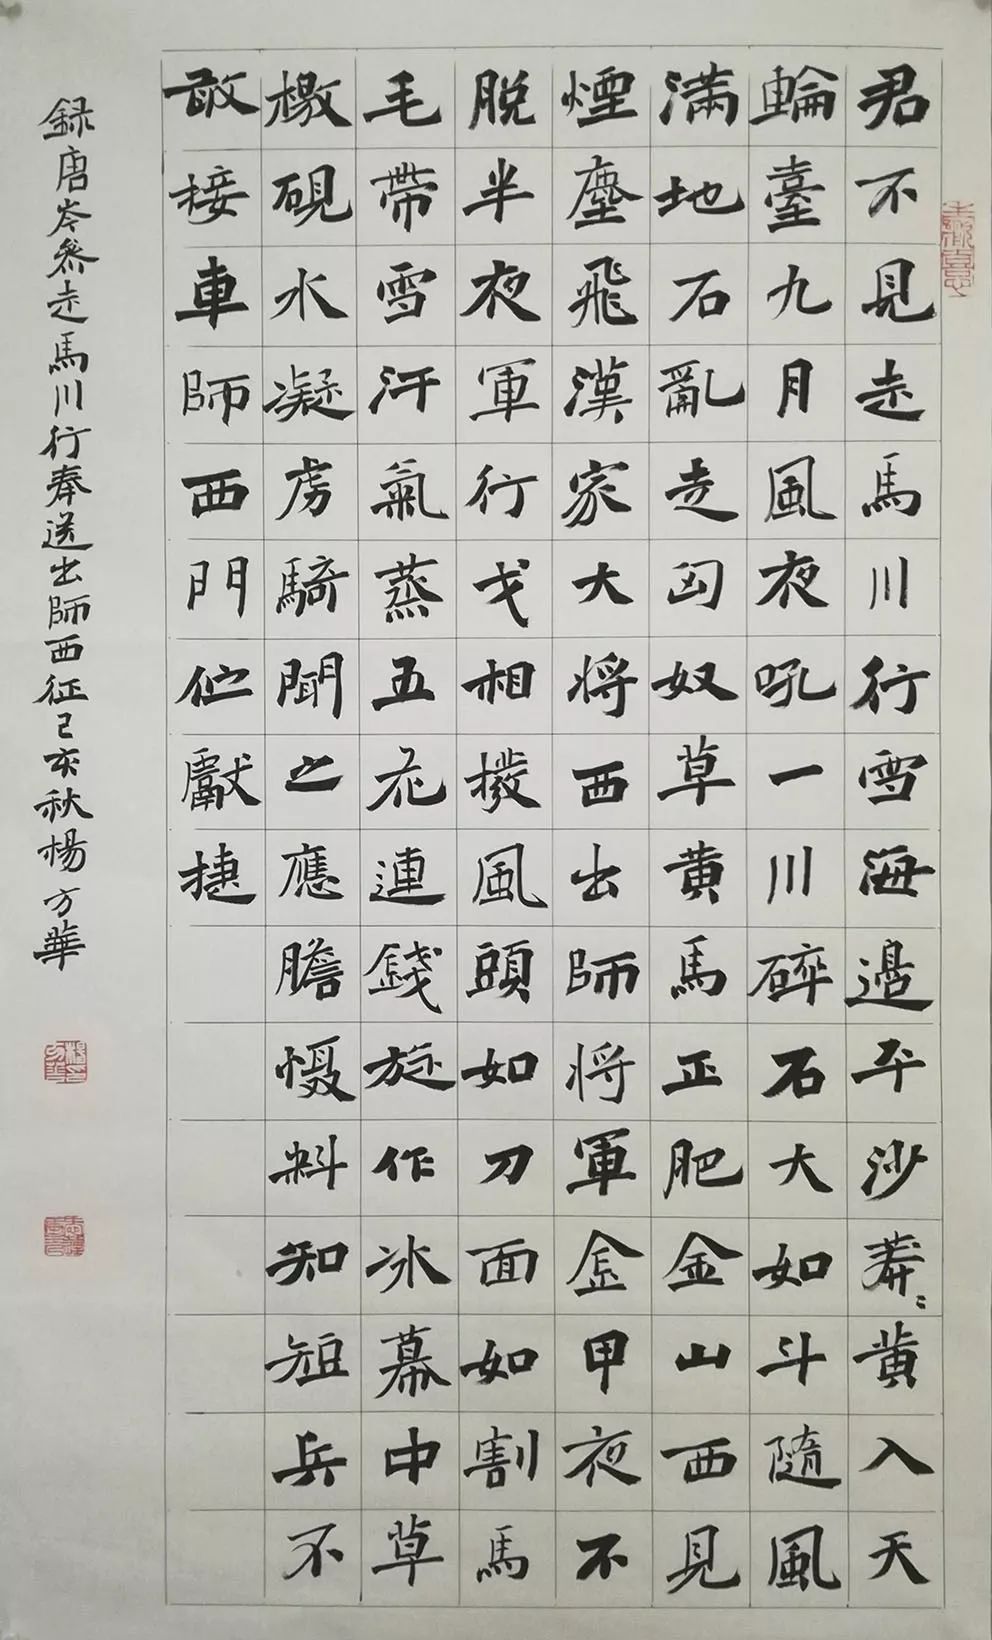 君不見走馬川行雪海邊平沙莽〻黄入天
輪臺九月風夜吼一川碎石大如斗隨風
滿地石亂走匈奴草黄馬正肥金山西見
煙塵飛漢家大將西出師將軍金甲夜不
脱半夜軍行戈相撥風頭如刀面如割馬
毛帶雪汗氣蒸五花連錢旋作冰幕中草
檄硯水凝虜騎聞之應膽慑料知短兵不
敢接車師西門伫獻捷
録唐岑參走馬川行奉送出師西征己亥秋楊方華